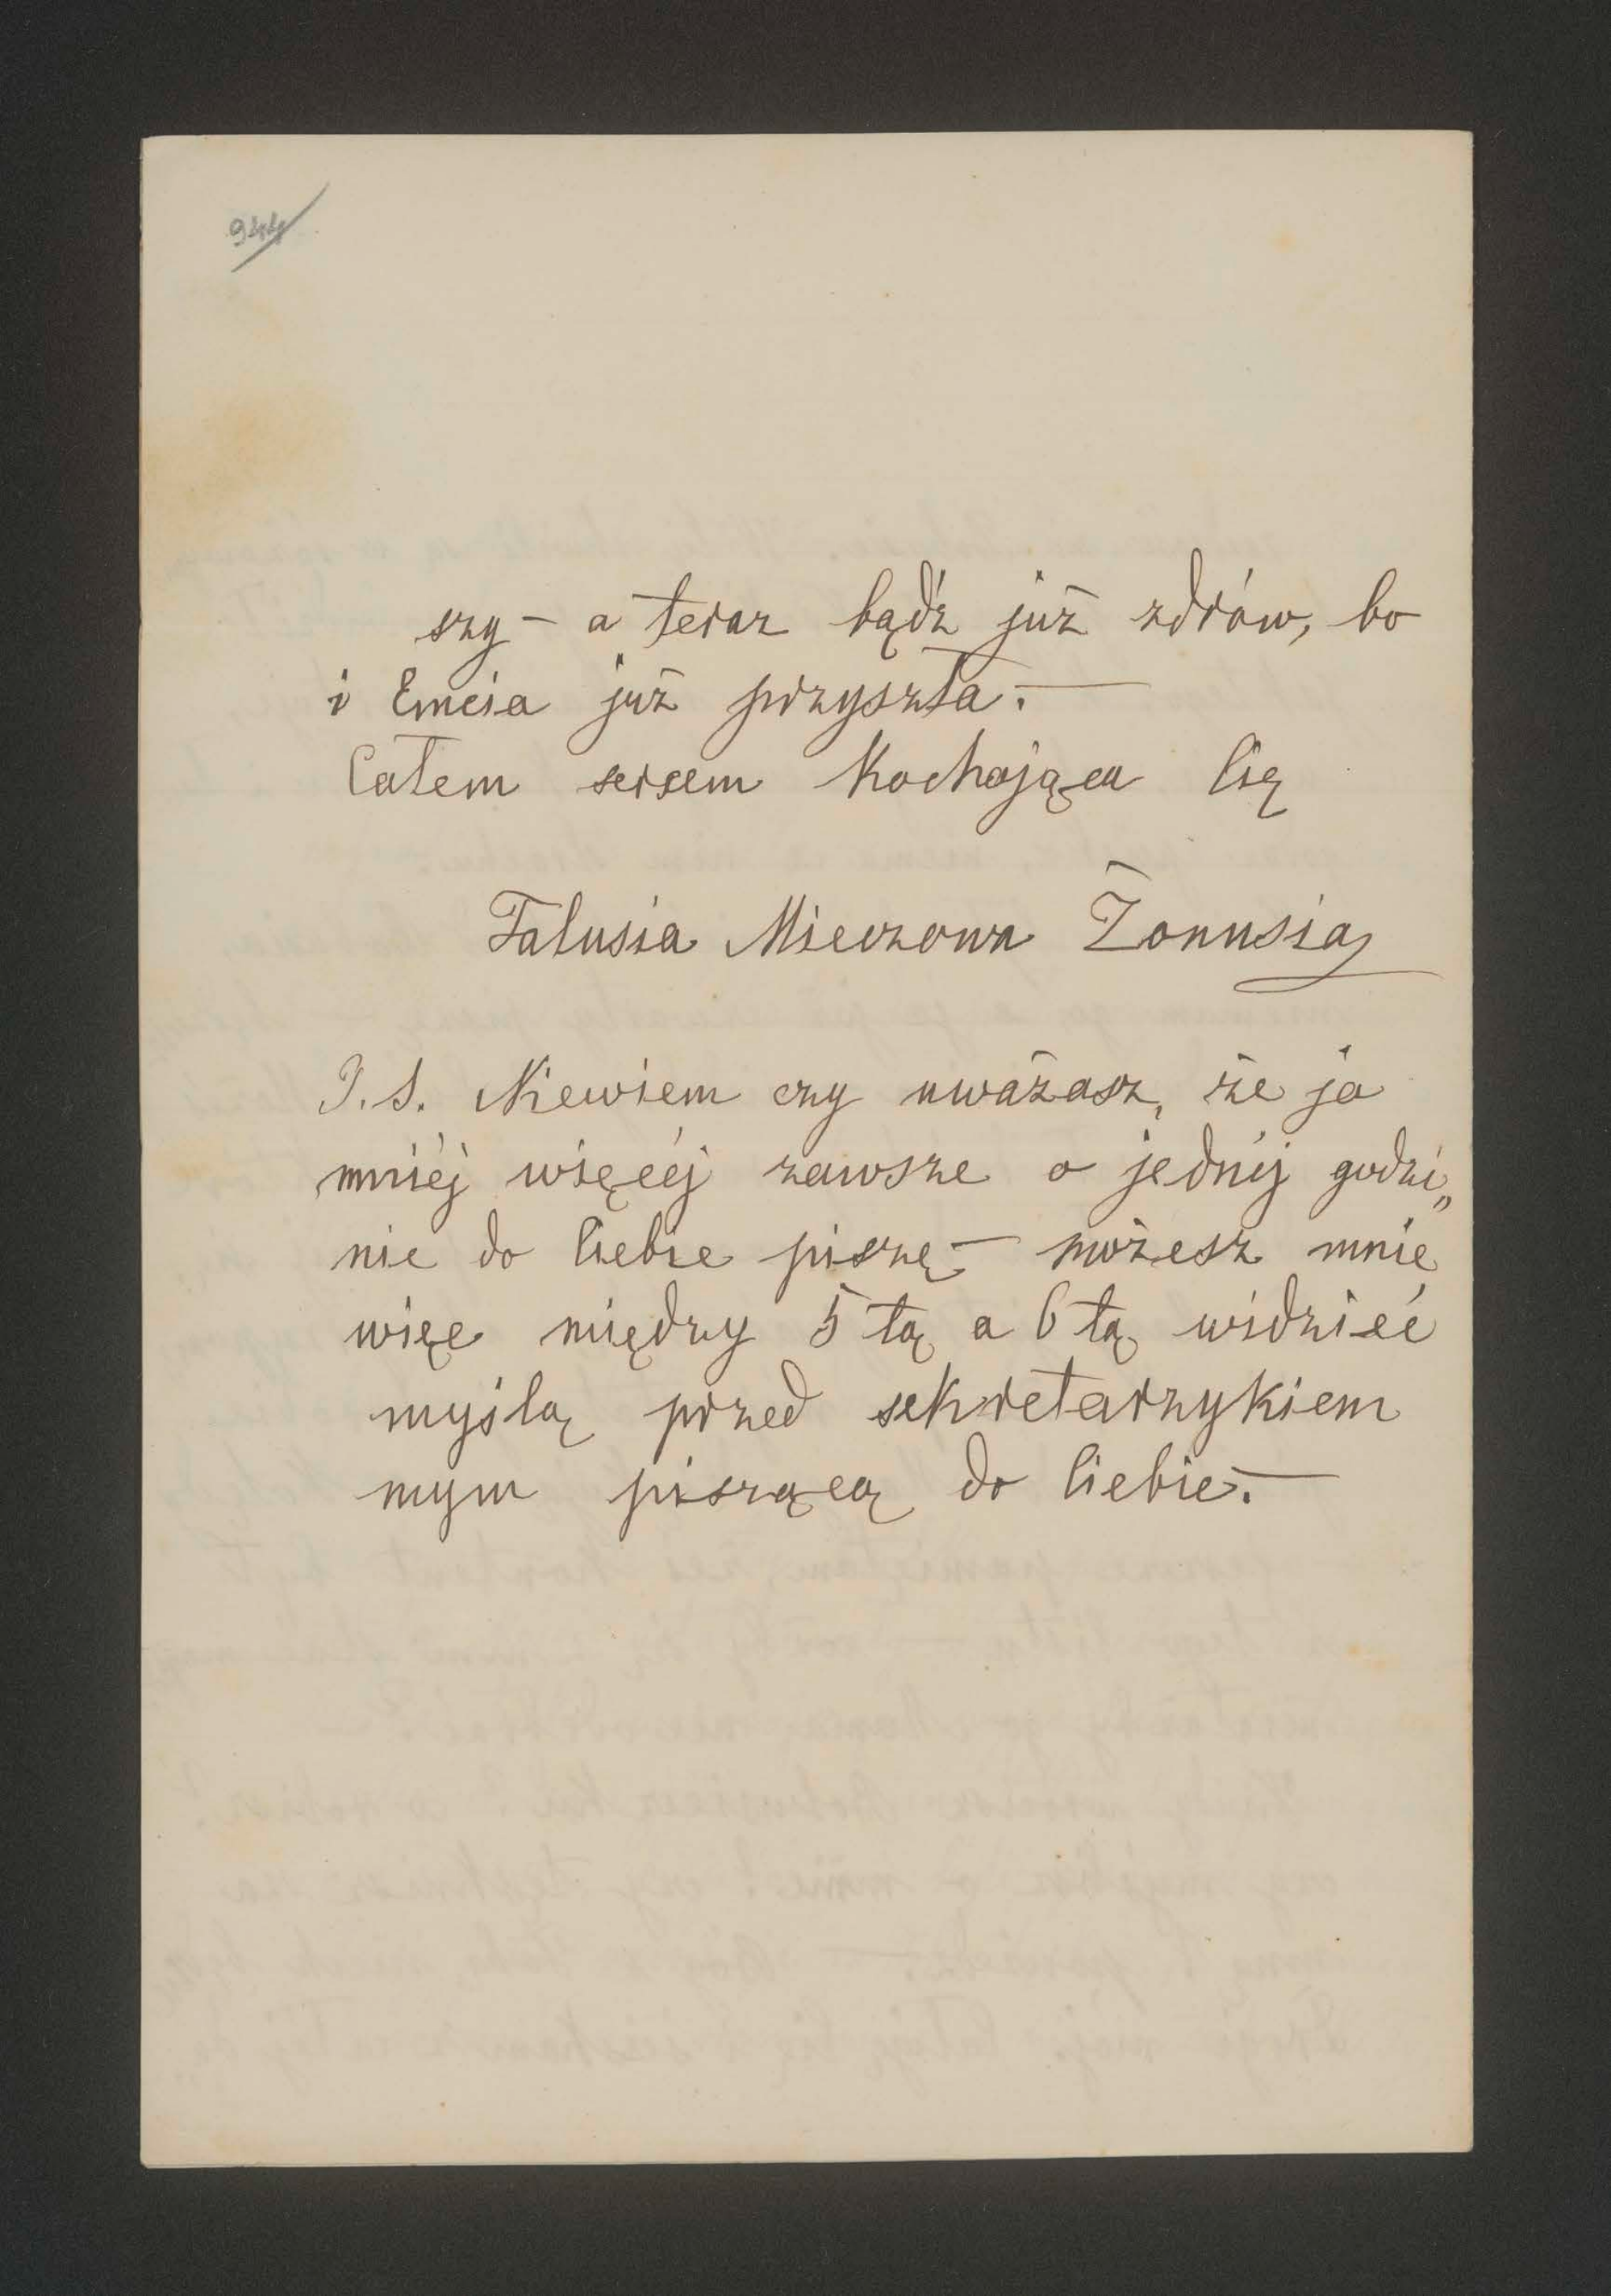 944
szy – a teraz bądź już zdrów, bo
i Emcia już przyszła. —
Całem sercem Kochająca Cię
Talusia Mieczowa Żonusia
P.S. Niewiem czy uważasz, że ja
mniéj więcéj zawsze o jednéj godzi„
nie do Ciebie piszę – możesz mnie
więc między 5tą a 6tą widzieć
myślą przed sekretarzykiem
mym piszącą do Ciebie. —